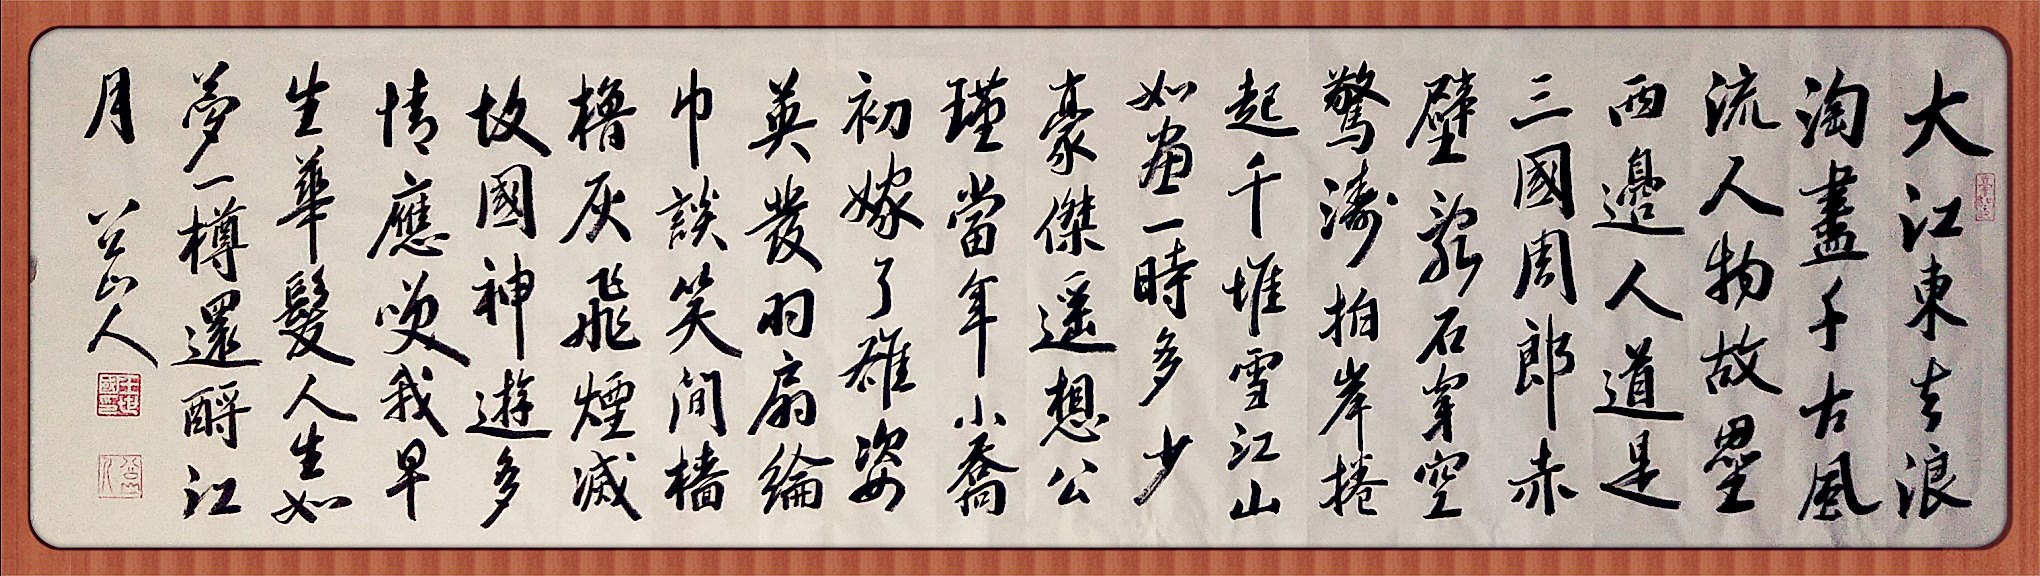 大江東去浪
淘盡千古風
流人物故壘
西邊人道是
三國周郎赤
壁亂石穿空
驚濤拍岸捲
起千堆雪江山
如畫一時多少
豪傑遥想公
瑾當年小喬
初嫁了雄姿
英發羽扇綸
巾談笑間檣
櫓灰飛煙滅
故國神遊多
情應咲我早
生華髮人生如
夢一樽還酹江
月 公山人